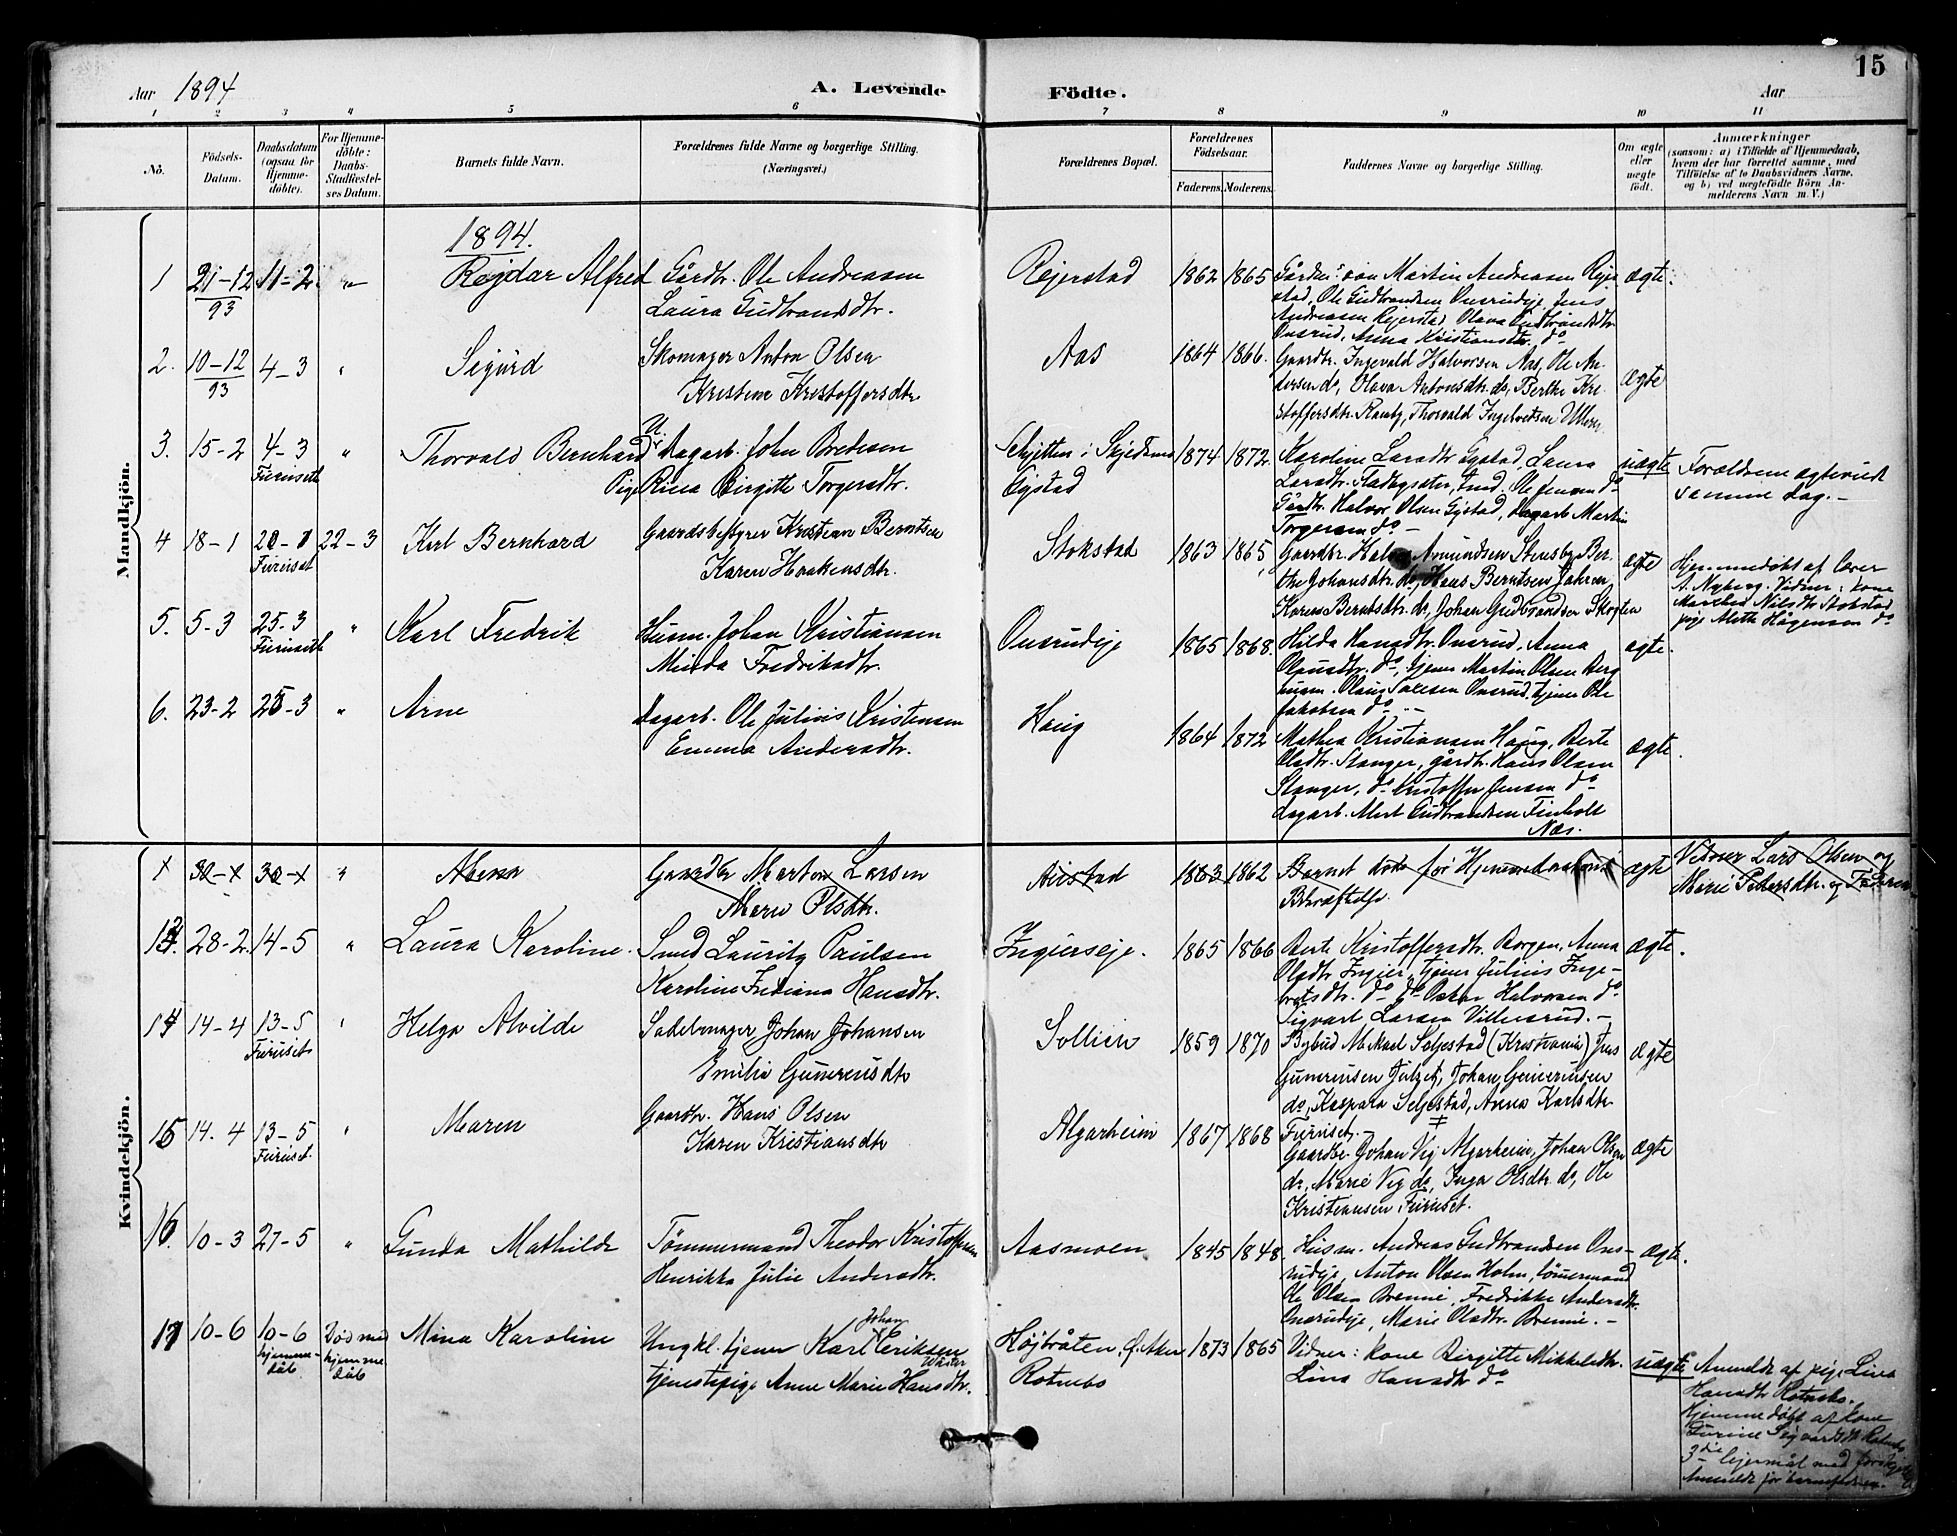 15
Aar 1894
A. Levende Födte.
Aar
1 2 3 4 5 6 7 8 9 10 11
No.
Födsels-Datum.
Daabsdatum (ogsaa for Hjemme-döbte).
For Hjemme-döbte: Daabs-Stadfæstel-ses Datum.
Barnets fulde Navn.
Forældrenes fulde Navne og borgerlige Stilling.
(Næringsvei.)
Forældrenes Bopæl.
Forældrenes Födselsaar.
Faderens. Moderens.
Faddernes Navne og borgerlige Stilling.
Om ægte eller uægte födt.
Anmærkninger
(saasom: a) i Tilfælde af Hjemmedaab,
hvem der har forrettet samme, med
Tilföielse af to Daabsvidners Navne,
og b) ved uægtefödte Börn An-
melderens Navn m. V.)
Mandkjön.
1894.
1 21-12 93 11-2 " Rejdar Alfred
Gårdbr. Ole Andreasen
Laura Gudbrandsdtr.
Rejerstad 1862 1865
Martin Andreasen Rejer
stad, Ole Gudbrandsen Onsrudeje, Jens
Andreasen Rejerstad, Olava Gudbrandsdtr.
Onsrud, Anna Kristiansdtr. do
ægte.
2. 10-12 93 4-3 " Sigurd
Skomager Anton Olsen
Kristine Kristoffersdtr
Aas 1864 1866.
Gaardbr. Ingevald Halvorsen Aas, Ole An-
dersen do, Olava Antonsdtr. do, Berthe Kri-
stoffersdtr. Thorvald Ingebretsen Ullern
ægte
3. 15-2 4-3 Furuseth " Thorvald Bernhard
U. Dagarb. John Bredesen
Pige Rina Birgitte Torgersdtr.
Skjetten i Skjedsmo
Gystad
1874 1872.
Karoline Larsdtr Gystad, Laura
Larsdtr. Ole Jensen do
Gårdbr. Halvor Olsen Gystad, dagarb. Martin
Torgersen do -
uægte
Forældrene ægteviet
samme dag. -
4 18-1 20-1 Furuset 22-3 Karl Bernhard
Gaardsbestyrer Kristian Berntsen
Karen Haakensdtr.
Stokstad 1863 1865
Gaardbr. Amundsen Stensby, Ber-
the Johansdtr. do, Hans Berntsen
Karen Berntsdtr. do, Johan Gudbrandsen
ægte
Hjemmedöbt af Lærer
A. Nyberg. Vidner: kone
Marthe Nilsdtr Stokstad
pige Mette Hågensen do
5. 5-3 25-3 Furuseth " Karl Fredrik
Husm. Johan Kristiansen
Minda Fredriksdtr.
Onsrudeje 1865 1868.
Hilda Hansdtr. Onsrud, Anna
Olausdtr. do, tjener Martin Olsen Berg
husm. Olaus Onsrud, tjener Ole
Jakobsen do. -
ægte.
6. 23-2 25-3 " Arne
Dagarb. Ole Julius Kristensen
Emma Andersdtr.
Haug 1864 1872
Mathea Kristiansen Haug, Berte
Olsdtr. Stanger, gårdbr. Hans Olsen
Stanger, do Kristoffer Jensen do
dagarb. Gudbrandsen Finholt
Næs.
ægte.
Kvindekjön.
30- 30- "
Gaardbr Marten Larsen
Maren Olsdtr.
Aurstad 1863 1862
Barnet for Hjemmedaabens
Bekræftelse.
ægte
Vidner Lars Olsen og
Marie Petersdtr. og Faderen
13. 28-2. 14-5 " Laura Karoline.
Smed Lauritz Paulsen
Karoline Frediana Hansdtr.
Ingierseje. 1865 1866
Berte Kristoffersdtr. Borgen, Anna
Olsdtr. Ingier, tjener Julius Inge-
bretsdtr. do, do Oskar Halvorsen do
Sigvart Larsen -
ægte.
14 14-4 13-5 Furuset " Helga Alvilde
Sadelmager Johan Johansen
Emilie Gunerusdtr
Sollien 1859 1870
Bybud Mikael Seljestad (Kristiania) Jens
Gunerinsen Julset, Johan Gunerinsen
do, Kaspara Seljestad, Anna Karlsdtr
Furuset. -
ægte
15 14.4 13-5 Furuset. " Maren
Gaardbr. Hans Olsen
Karen Kristiansdtr
Algarheim 1867 1868
Gaardbr Johan Vig Algarheim, Johan Olsen
do, Marie Vig do, Inga Olsdtr. do, Ole
Kristiansen Furuset.
ægte
16. 10-3 27-5 " Gunda Mathilde
Tömmermand Theodor Kristoffersen
Henrikka Julie Andersdtr.
Aasmoen 1845 1848.
Husm. Andreas Gudbrandsen Ons-
rudeje, Anton Olsen Holm, tömmermand
Ole Olsen Brenni, Fredrikke Andersdtr.
Onsrudeje, Marie Olsdtr. Brenni. -
ægte.
17 10-6 10-6 hjemme-dåb Död med hjemme dåb Mina Karoline
Ungkl. tjener Karl Johan Eriksen
tjenestepige Anne Marie Hansdtr.
Höjbråten, Ö. Aker
Rotnebo
1873 1865
Vidner: kone Birgitte Mikkelsdtr.
Lina Hansdtr do
uægte
Anmeldt af pige Lina
Hansdtr Rotnebo.
Hjemmedöbt af kone
3die lejermål med
Anmeldt for barnefader